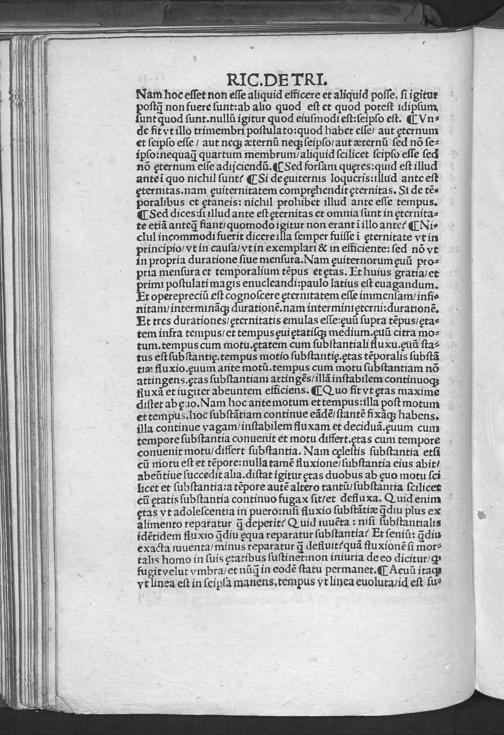 RIC.DE TRI.
Nam hoc esset non esse aliquid efficere et aliquid posse. si igitur
postq̃ non fuere sunt: ab alio quod est et quod potest idipsum,
sunt quod sunt. nullũ igitur quod eiusmodi est: seipso est. ¶ Vn/
de fit vt illo trimembri postulato: quod habet esse/ aut ęternum
et seipso esse/ aut necꝫ æternũ neqꝫ seipso/ aut æternũ sed nõ se/
ipso: nequaq̃ quartum membrum/ aliquid scilicet seipso esse sed
nõ ęternum esse adjiciendũ. ¶ Sed forsam quęres: quid est illud
ante ĩ quo nichil sunt? ¶ Si de ęuiternis loqueris: illud ante est
ęternitas. nam ęuiternitatem comprehendit ęternitas. Si de tẽ/
poralibus et ętaneis: nichil prohibet illud ante esse tempus.
¶ Sed dices: si illud ante est ęternitas et omnia sunt in ęternita/
te etiã anteq̃ fiant/ quomodo igitur non erant ĩ illo ante? ¶ Ni/
chil incommodi fuerit dicere illa semper fuisse ĩ ęternitate vt in
principio/ vt in causa/ vt in exemplari & in efficiente: sed nõ vt
in propria duratione siue mensura. Nam ęuiternorum ęuũ pro/
pria mensura et temporalium tẽpus et ętas. Et huius gratia/ et
primi postulati magis enucleandi: paulo latius est euagandum.
Et operepreciũ est cognoscere ęternitatem esse immensam/ infi/
nitam/ interminãqꝫ durationẽ. nam intermini ęterni: durationẽ.
Et tres durationes/ ęternitatis emulas esse: ęuũ supra tẽpus/ ęta/
tem infra tempus/ et tempus ęui ętatisqꝫ medium. ęuũ citra mo/
tum. tempus cum motu. ętatem cum substantiali fluxu. ęuũ sta/
tus est substantię. tempus motio substantię. ętas tẽporalis substã
tiæ fluxio. ęuum ante motũ. tempus cum motu substantiam nõ
attingens. ętas substantiam attingẽs/ illã instabilem continuoqꝫ
fluxã et iugiter abeuntem efficiens. ¶ Quo fit vt ętas maxime
distet ab ęuo. Nam hoc ante motum et tempus: illa post motum
et tempus. hoc substãtiam continue eãdẽ/ stantẽ fixãqꝫ habens.
illa continue vagam/ instabilem fluxam et deciduã. ęuum cum
tempore substantia conuenit et motu differt. ętas cum tempore
conuenit motu/ differt substantia. Nam cęlestis substantia etsi
cũ motu est et tẽpore: nulla tamẽ fluxione/ substantia eius abit/
abeũtiue succedit alia. distat igitur ętas duobus ab ęuo motu sci
licet et substantia: a tẽpore autẽ altero tantũ/ substantia scilicet
cũ ętatis substantia continuo fugax sit/ et defluxa. Quid enim
ętas vt adolescentia in puero: nisi fluxio substãtiæ q̃diu plus ex
alimento reparatur q̃ deperit? Quid iuuẽta: nisi substantialis
idẽtidem fluxio q̃diu ęqua reparatur substantia? Et seniũ: q̃diu
exacta iuuenta/ minus reparatur q̃ defluit? quã fluxionẽ si mor/
talis homo in suis ętatibus sustinet: non iniuria de eo dicitur/ ꝙ
fugit velut vmbra/ et nũq̃ in eodẽ statu permanet. ¶ Aeuũ itaqꝫ
vt linea est in seipsa manens, tempus vt linea euoluta/ id est su/